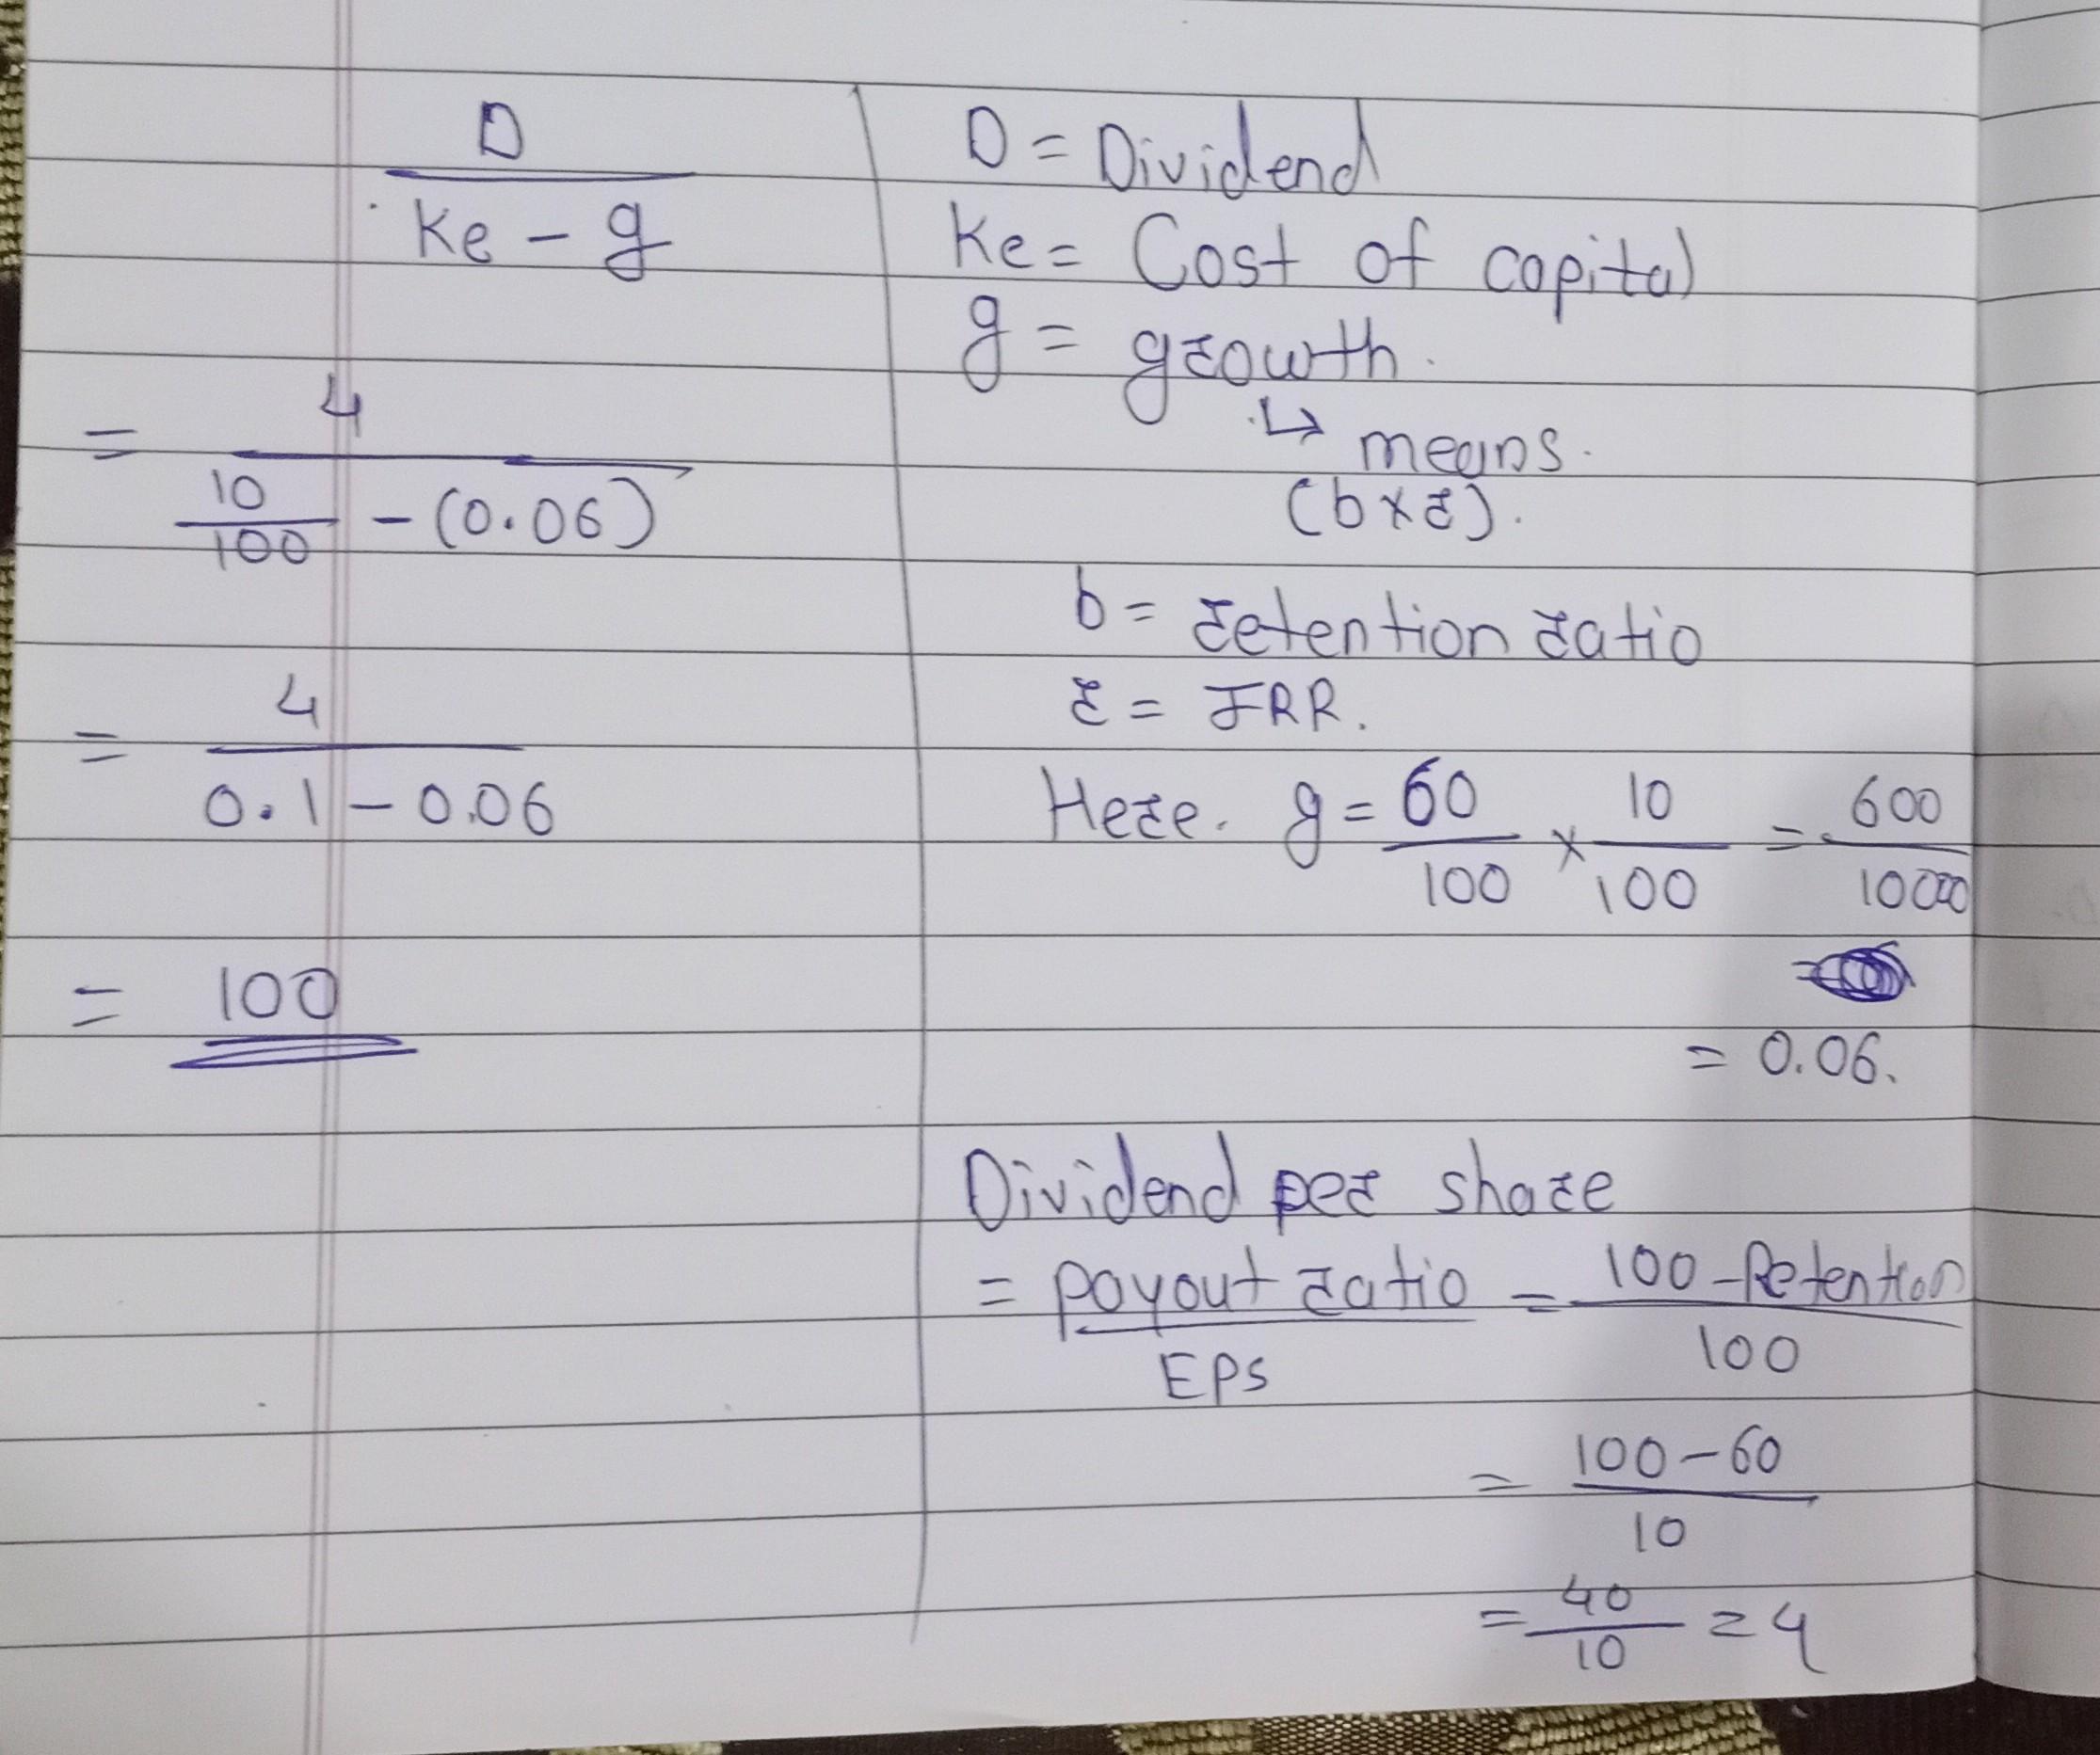 D
Ke - g
= 4
10
100 - (0.06)
= 4
0.1 - 0.06
= 100
D = Dividend
Ke = Cost of capital
g = growth.
↳ means.
(b x r).
b = retention ratio
r = IRR.
Here. g = 60 x 10 = 600
100 100 10000
=
= 0.06.
Dividend per share
= payout ratio = 100 - Retention
EPS 100
= 100 - 60
10
= 40 = 4
10